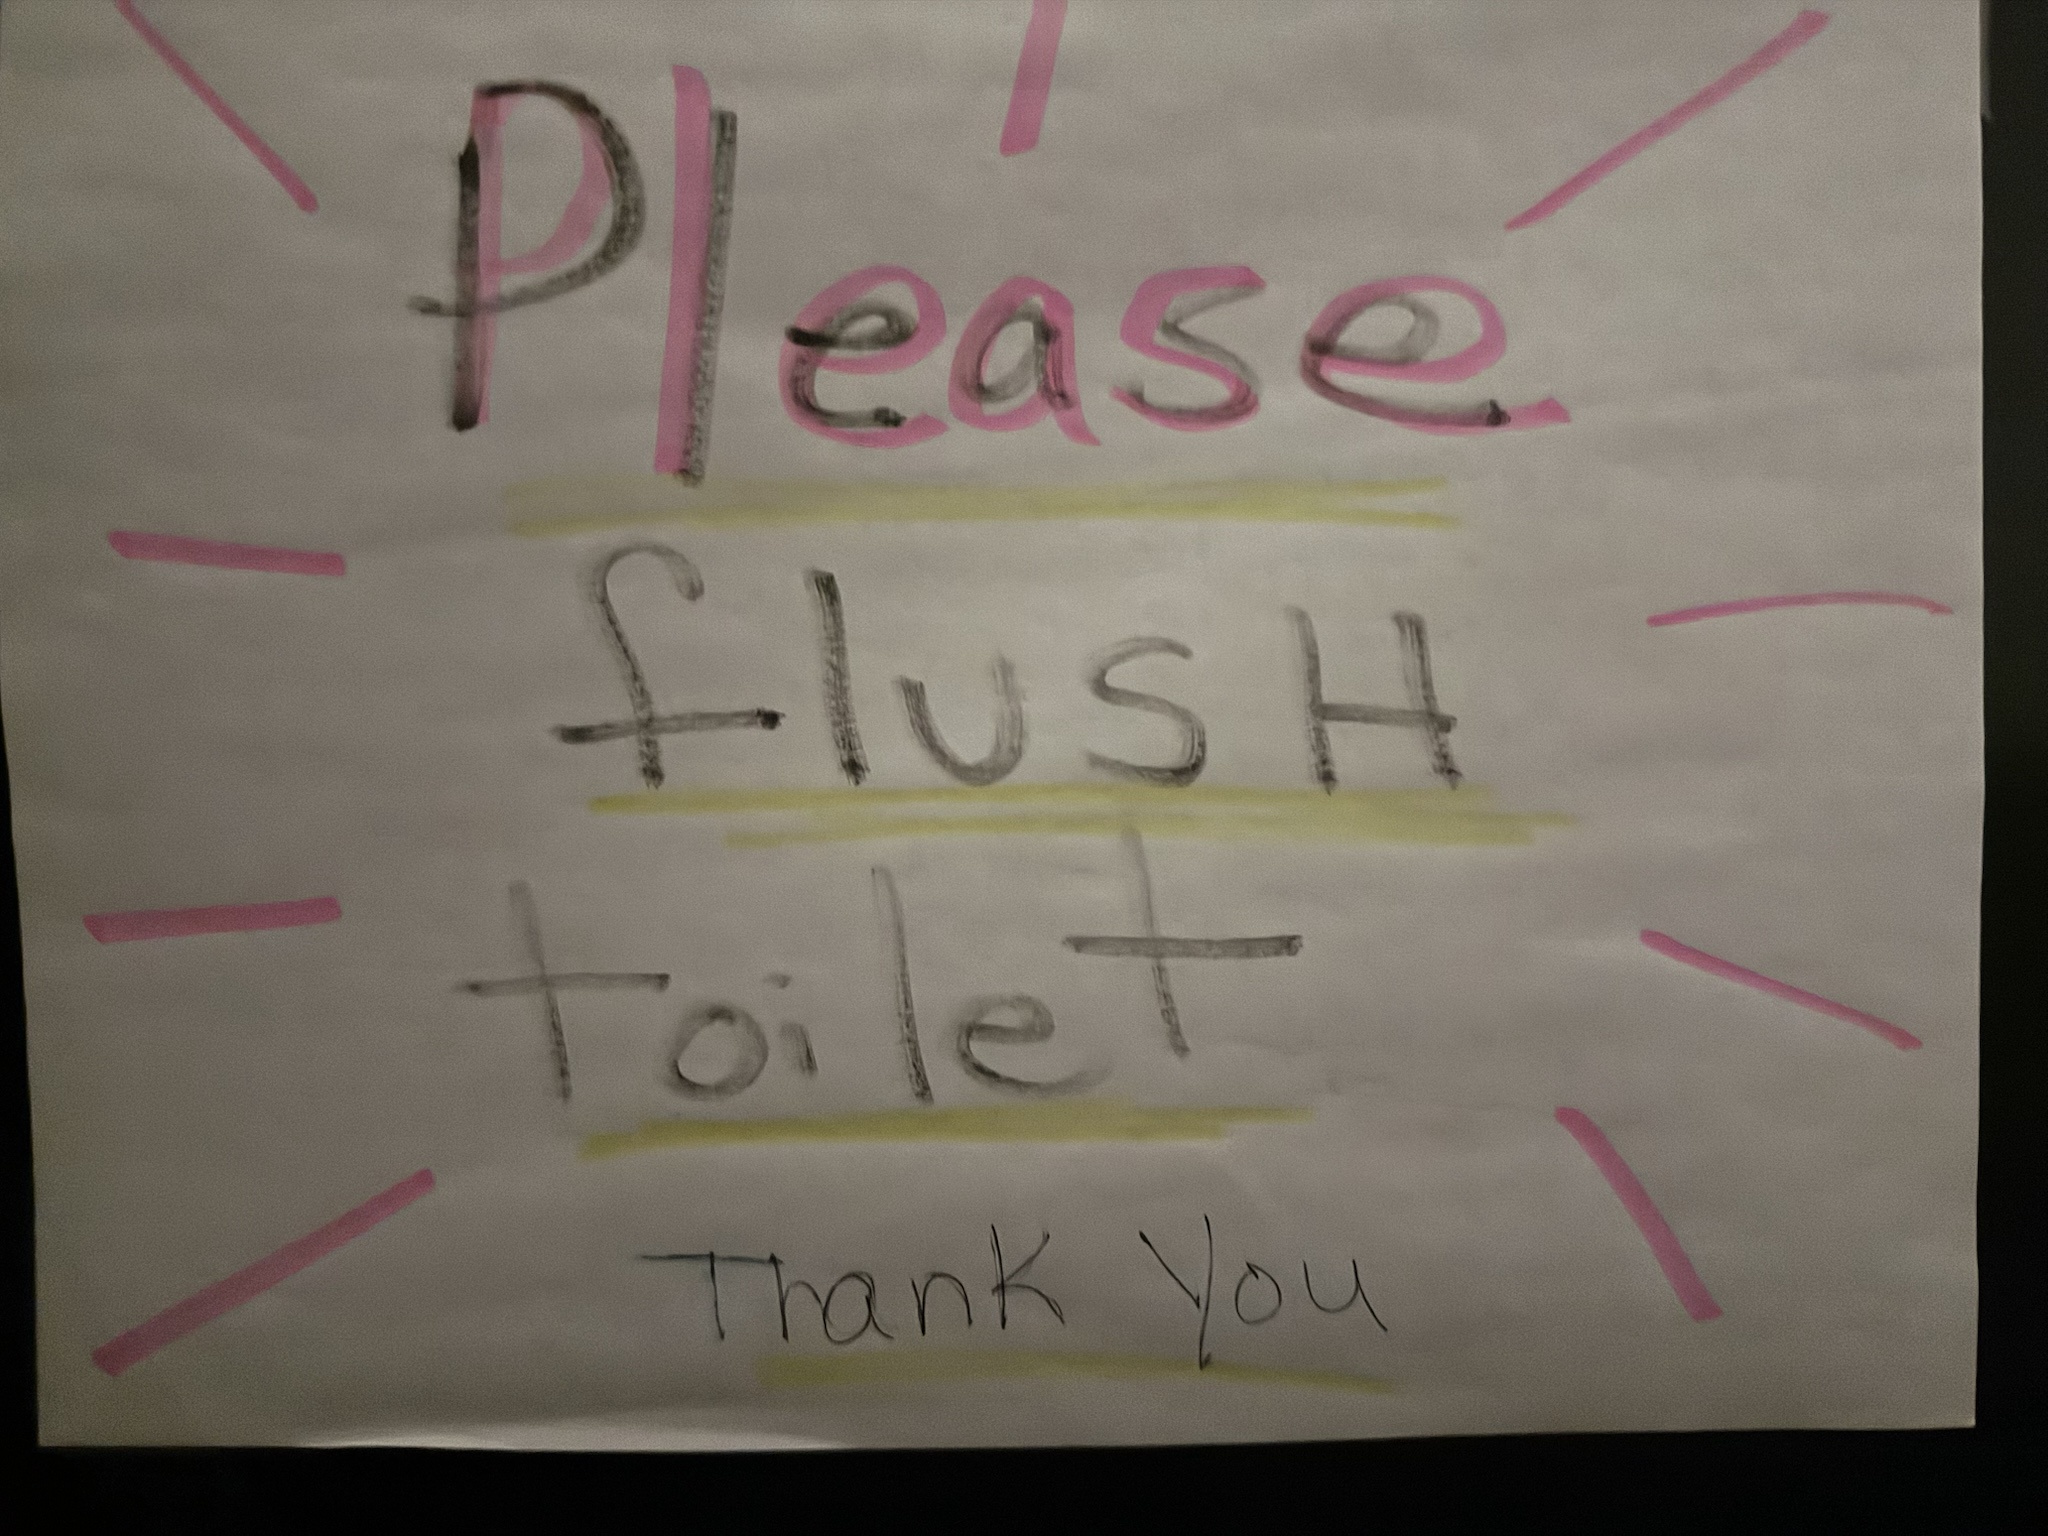 Please
flusH
toilet
Thank You